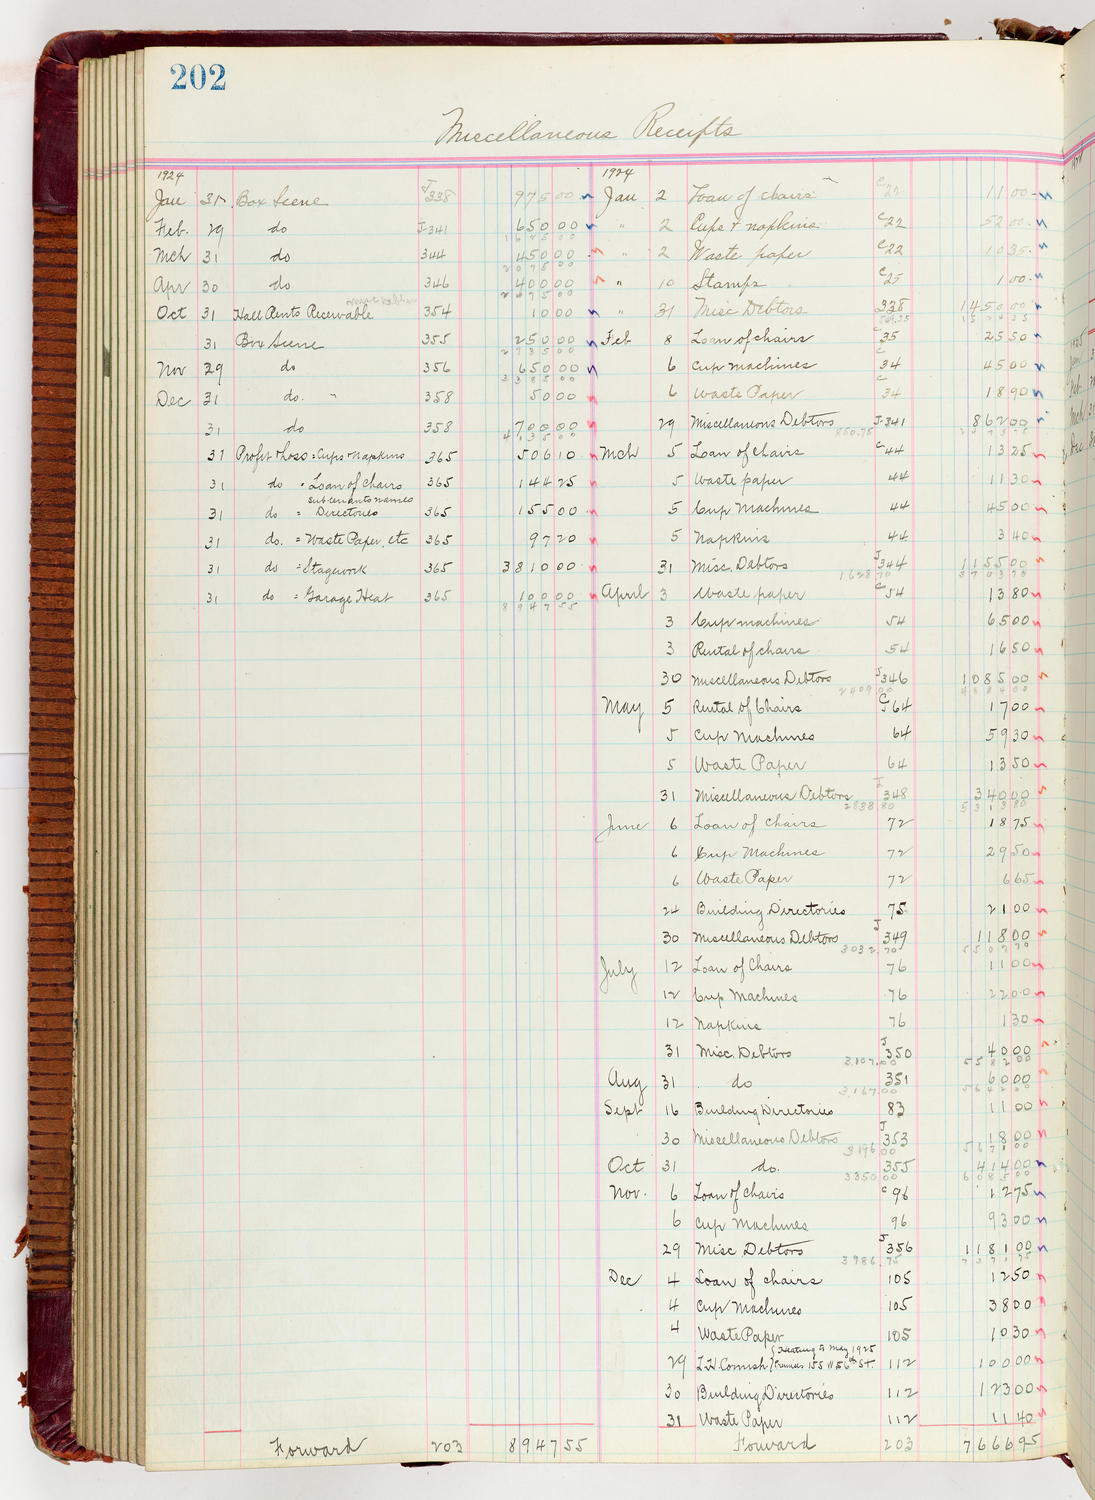 202
Miscellaneous Receipts
1924
Jan 31 Box Scene J338 975 00
Feb. 29 do J341 650 00
1625 00
Mch 31 do 344 450 00
2075 00
Apr 30 do 346 400 00
2475 00
Oct 31 Hall Rents Receivable 354 10 00
31 Box Scene 355 250 00
2735 00
Nov 29 do 356 650 00
3385 00
Dec 31 do. " 358 50 00
31 do 358 700 00
4135 00
31 Profit & Loss = Cups & Napkins 365 506 10
31 do " Loan of Chairs 365 144 25
31 do = Directories 365 155 00
subtenants names
31 do. = Waste Paper, etc 365 97 20
31 do = Stagework 365 3810 00
31 do = Garage Heat 365 100 00
8947 55
Forward 203 8947 55
1924
Jan 2 Loan of chairs C22 11 00
" 2 Cups & napkins C22 52 00
" 2 Waste paper C22 10 35
" 10 Stamps C25 1 00
" 31 Misc Debtors 338 1450 00
1524 35
Feb 8 Loan of chairs C35 25 50
6 Cup machines C34 45 00
6 Waste Paper C34 18 90
29 Miscellaneous Debtors J341 862 00
Mch 5 Loan of chairs C44 13 25
5 Waste paper 44 11 30
5 Cup Machines 44 45 00
5 Napkins 44 3 40
31 Misc. Debtors J344 1155 00
1628.70 3703 75
April 3 Waste paper C54 13 80
3 Cup machines 54 65 00
3 Rental of chairs 54 16 50
30 Miscellaneous Debtors J346 1085 00
2409.00 4884 00
May 5 Rental of Chairs C64 17 00
5 Cup Machines 64 59 30
5 Waste Paper 64 13 50
31 Miscellaneous Debtors J348 340 00
2838 80 5313 80
June 6 Loan of Chairs 72 18 75
6 Cup Machines 72 29 50
6 Waste Paper 72 6 65
24 Building Directories 75 21 00
30 Miscellaneous Debtors J349 118 00
3032.70 5507 70
July 12 Loan of Chairs 76 11 00
12 Cup Machines 76 22 00
12 Napkins 76 1 30
31 Misc. Debtors J350 40 00
3.107.00 5582 00
Aug 31 do 351 60 00
3.167.00 5642 00
Sept 16 Building Directories 83 11 00
30 Miscellaneous Debtors J353 18 00
3196 00 5671 00
Oct 31 do. 355 414 00
3350 00 6085 00
Nov. 6 Loan of Chairs C96 12 75
6 Cup Machines 96 93 00
29 Misc Debtors J356 1181 00
3986.75 7371 75
Dec 4 Loan of chairs 105 12 50
4 Cup Machines 105 38 00
4 Waste Paper 105 10 30
29 L.H. Cornish {Heating to May 1925 Premises 155 W 56th St. 112 100 00
30 Building Directories 112 123 00
31 Waste Paper 112 11 40
Forward 203 7666 95